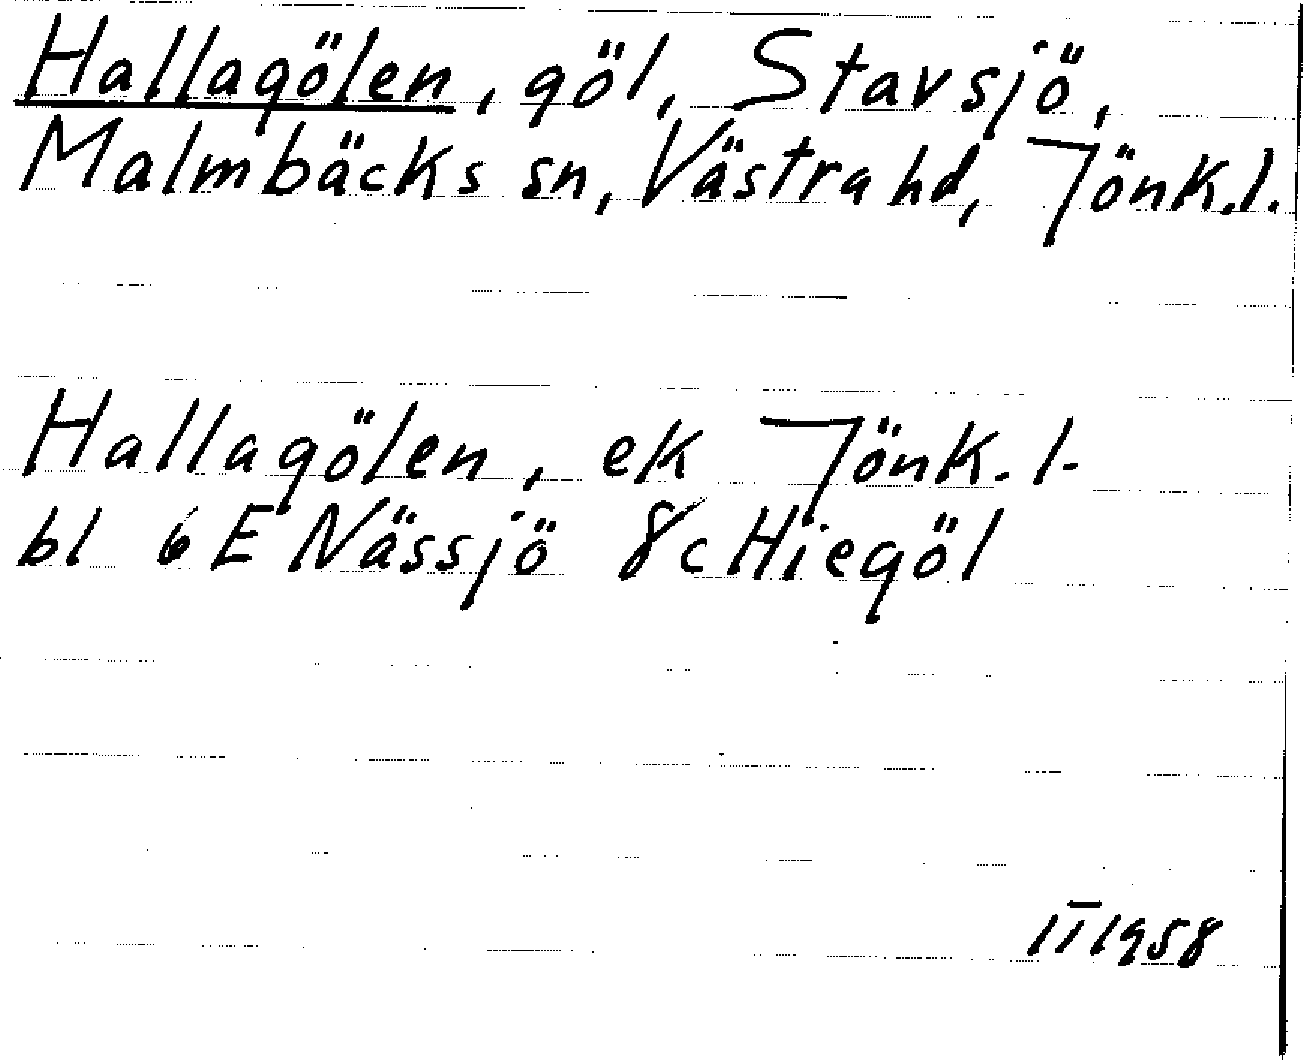 Hallagölen, göl, Stavsjö,
Malmbäcks sn, Västra hd, Jönk.l.
Hallagölen, ek Jönk.l.
bl 6E Nässjö 8c Hiegöl
II 1958